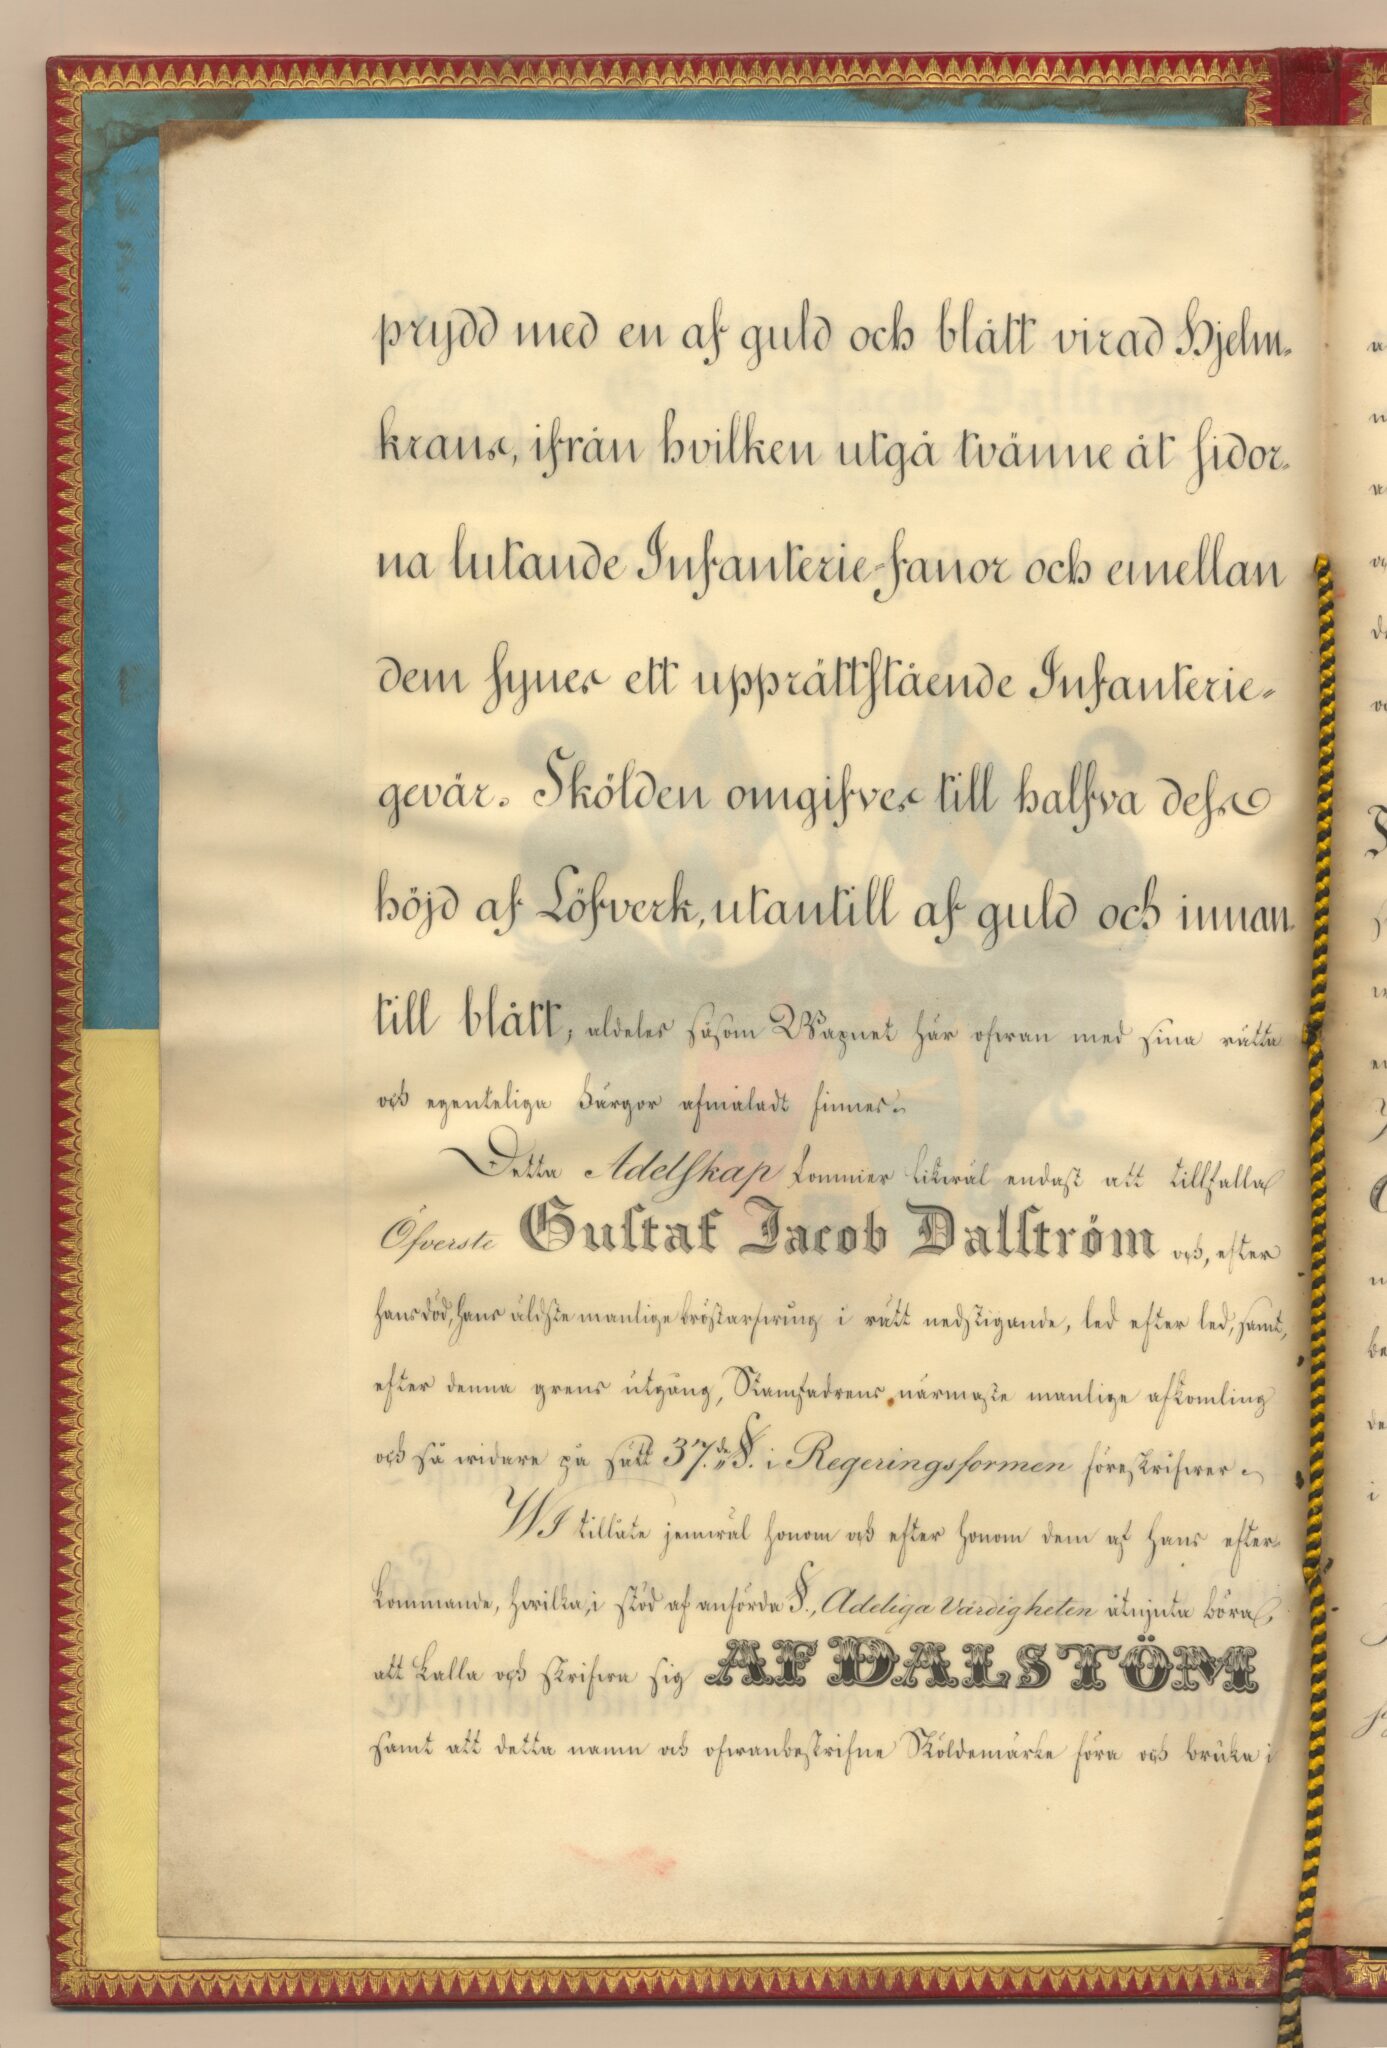 prydd med en af guld och blått virad Hjelm-
krans, ifrån hvilken utgå tvänne åt sidor-
na lutande Infanterie-fanor och emellan
dem synes ett upprättstående Infanterie-
gevär. Skölden omgifves till halfva dess
höjd af Löfverk, utantill af guld och innan-
till blått, aldeles såsom Wapnet här ofwan med sina rätta
och egenteliga färgor afmåladt finnes.
Detta Adelskap kommer likwäl endast att tillfalla
Öfverste Gustaf Jacob Dalström och, efter
hans död, hans äldste manlige bröstarfwing i rätt nedstigande, led efter led, samt,
efter denna grens utgång, Stamfadrens närmaste manlige afkomling
och så widare på sätt 37.de §. i Regeringsformen föreskrifwer.
WI tillåte jemwäl honom och efter honom dem af hans efter-
kommande, hwilka, i stöd af anförda §., Adeliga Värdigheten åtnjuta böra,
att kalla och skrifwa sig AF DALSTÖM
samt att detta namn och ofwanbeskrifne Sköldemärke föra och bruka i